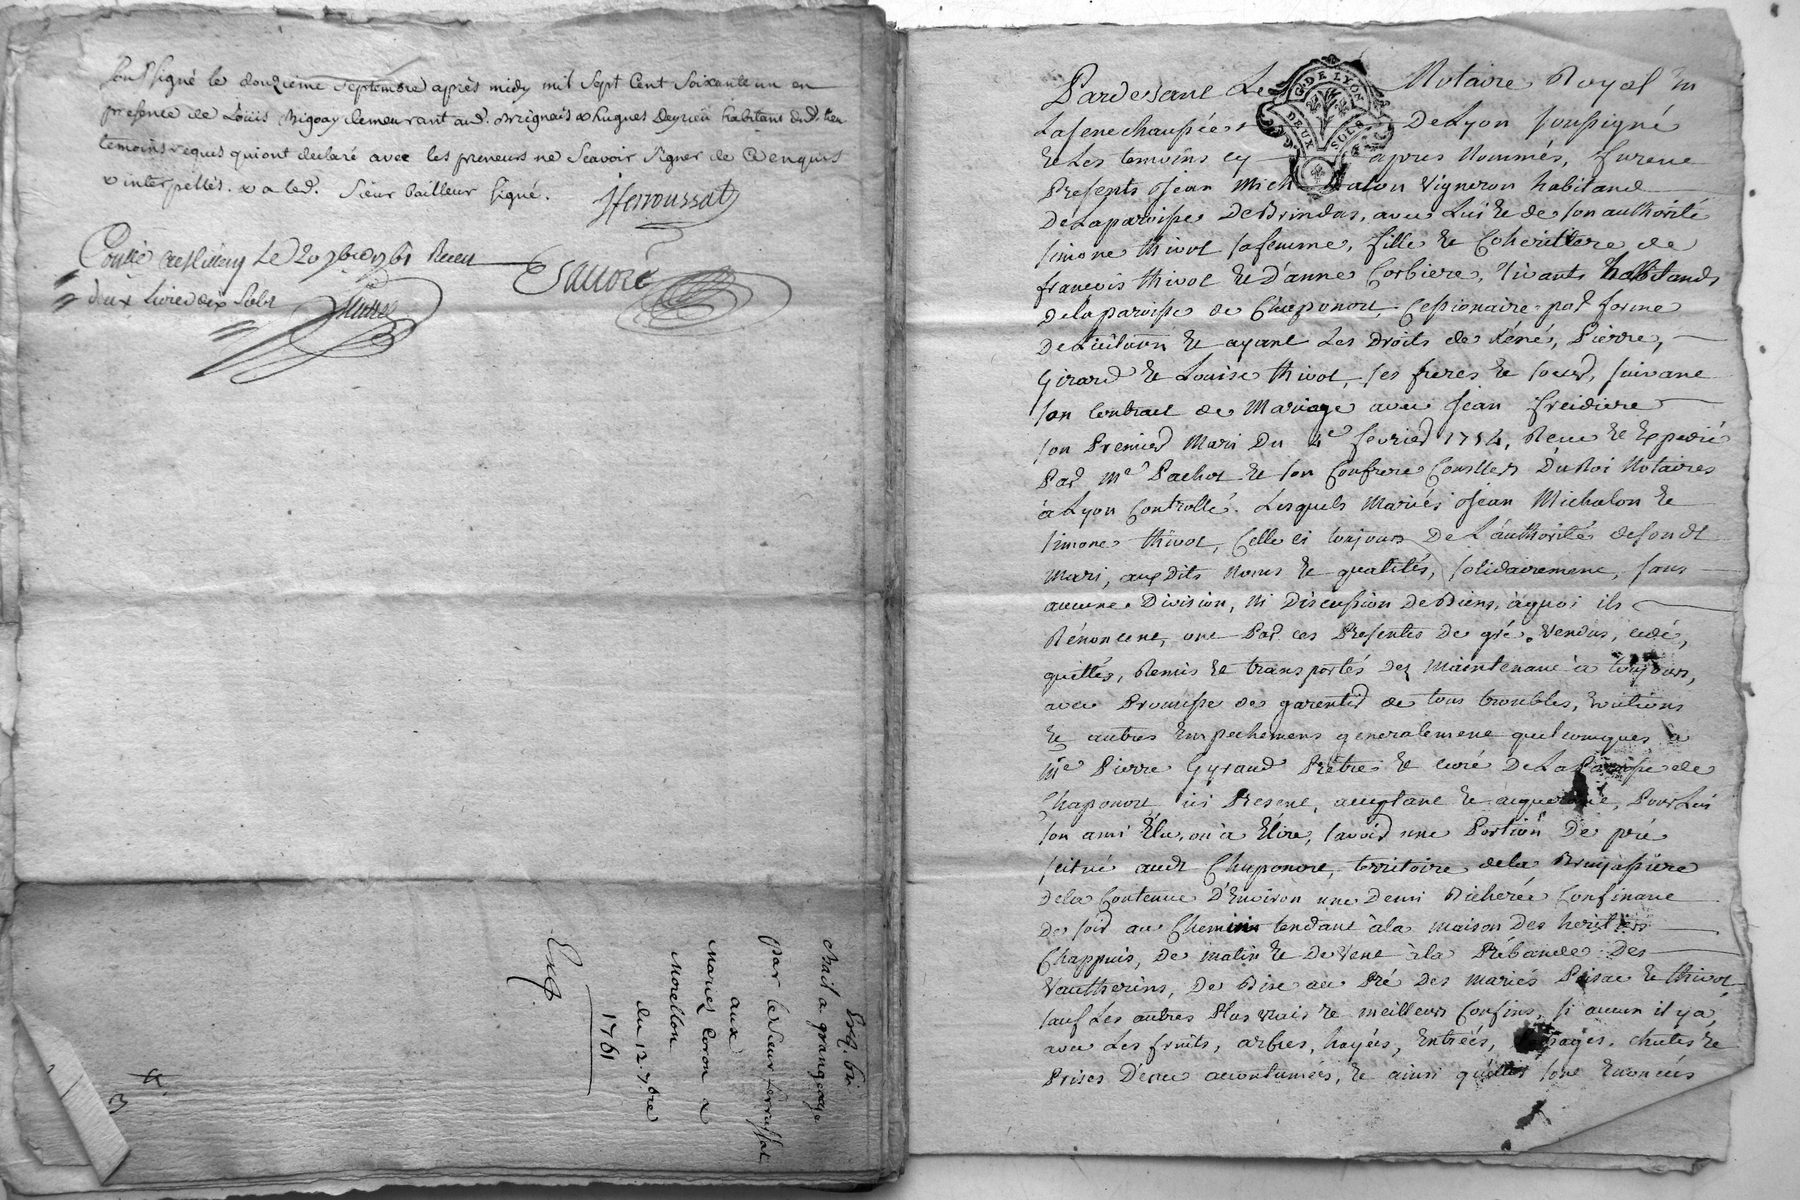 signé le douzieme septembre après midy mil sept cent soixante un en
presence de Louis Rigoay demeurant aud. Brignais & hugues Deyrieu habitant dud. lieu
temoins requis qui ont declaré avec les preneurs ne scavoir signer de ce enquis
& interpellés. & a led. sieur bailleur signé.
Le 20 7bre 1761 Receu
deux livre dix sols
Exq. bis
Bail a grangeage
par le sieur ferrussat
aux
mariés Coron &
Morellon
du 12. 7bre
1761
Exq.
3
G. DE LYON
DEUX SOLS
Pardevant Le Notaire Royal en
La senechaussée De Lyon soussigné
et Les temoins cy apres Nommés, furent
Presents Jean Michalon Vigneron habitant
De La paroisse De Brindas, avec Lui et de son authorité
simone thivot sa femme, fille et Coheritiere de
francois thivot et d'anne Corbiere, Vivants habitands
de la paroisse de Chaponost, Cessionaire par forme
De Licitation et ayant Les Droits de Réné, Pierre,
Girard et Louise thivot, ses freres et soeur, suivant
son Contract de Mariage avec Jean freidiere
son Premier Mari Du 4e fevrier 1754, Receu et Expedié
Par Me Pachot et son Confrere Consllers Du Roi Notaires
à Lyon Controllé. Lesquels Mariés Jean Michalon et
simone thivot, Celle ci toujours De L'authorité desondt
Mari, aux Dits Noms et qualités, solidairement, sans
aucune Division, Ni Discussion De Biens, à quoi ils
Rénoncent, ont Par ces Presentes De gré, Vendus, cedé,
quittés, Remis et transportés Dez Maintenant à toujours,
avec Promesse de garentir de tous troubles, evictions
et autres Empechemens generalement quelconques à
Me Pierre Gyraud Prêtre et curé De La Paroisse de
Chaponost, ici Present, acceptant et acquerant, Pour Lui
son ami Elu, ou à Elire, savoir une Portion De pré
situé audt Chaponost, territoire de la
de la Contenue D'Environ une Demi Bicherée Confinant
De soir au Chemin tendant à la maison Des heritiers
Chappuis, De matin et De Vent à la Prébande Des
Vautherins, De Bise au Pré Des mariés et thivot,
sauf Les autres Plus vrais et meilleurs Confins, si aucun il y a,
avec Les fruits, arbres, hayes, Entrées, passages, chutes et
Prises D'eau acoutumées, et ainsi qu'elles sont Enoncées